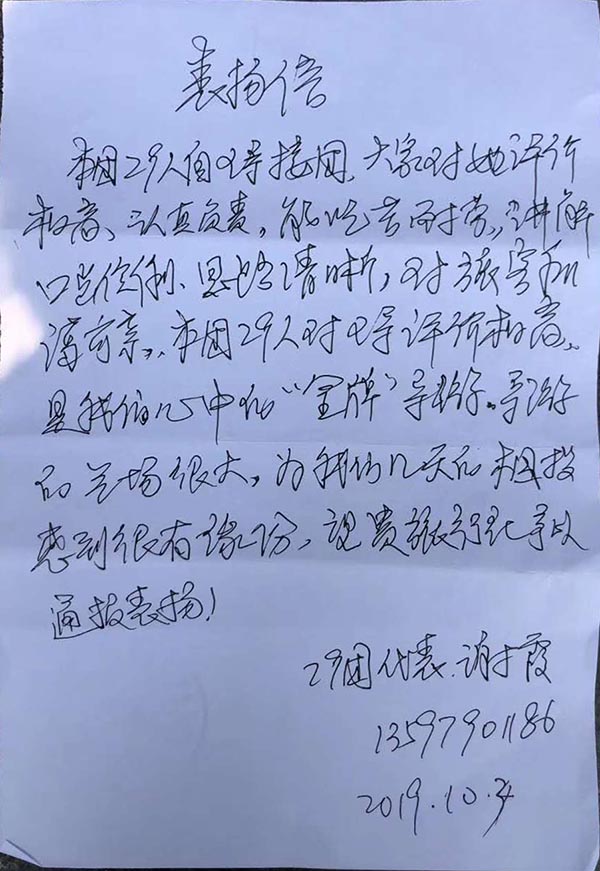 表扬信
本团29人自×导接团,大家对她评价
极高、认真负责,能吃苦耐劳,讲解
口齿伶俐、思路清晰,对旅客和
蔼可亲,本团29人对×导评价极高。
是我们心中的“金牌”导游。导游
的气场很大,为我们几天的相投
感到很有缘份,望贵旅行社予以
通报表扬!
29团代表:谢霞
13597901186
2019.10.